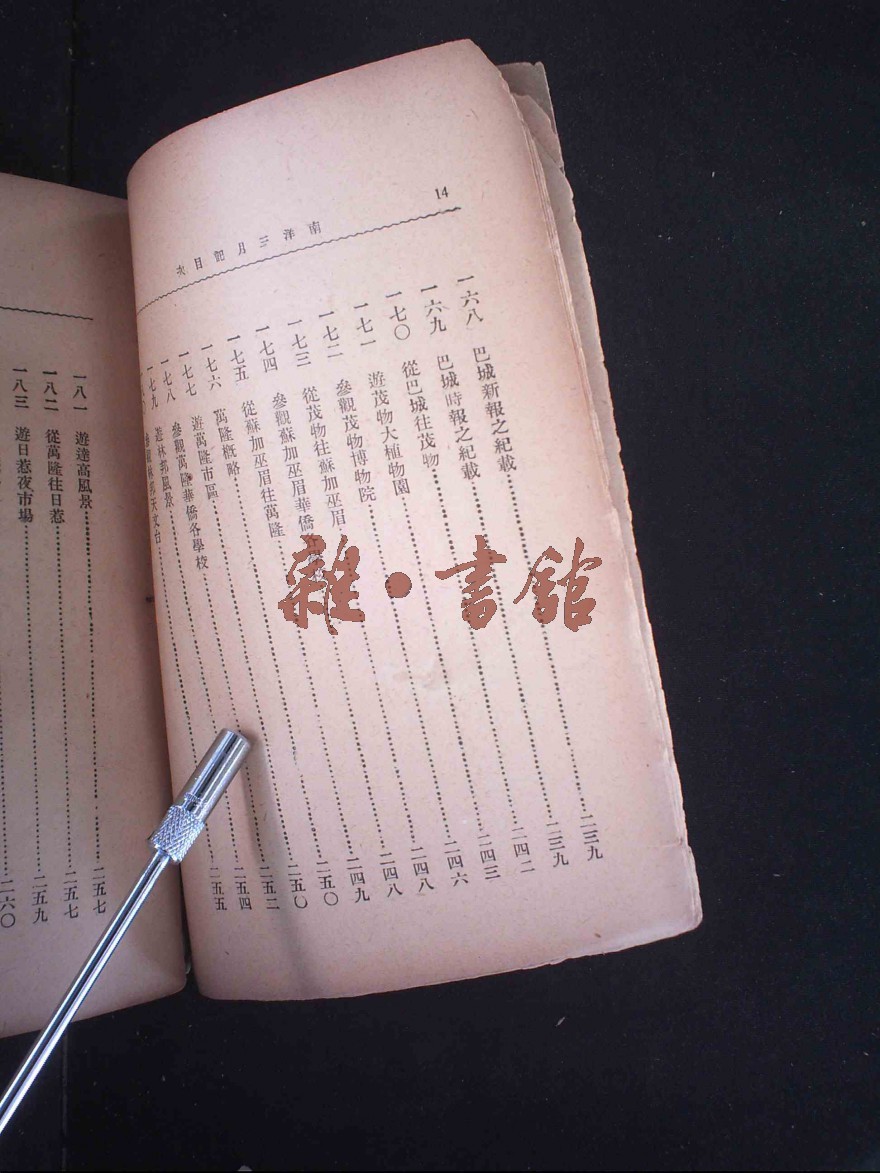 14
南洋三月記目次
一六八 巴城新報之紀載 二三九
一六九 巴城時報之紀載 二三九
一七〇 從巴城往茂物 二四二
一七一 遊茂物大植物園 二四三
一七二 參觀茂物博物院 二四六
一七三 從茂物往蘇加巫眉 二四八
一七四 參觀蘇加巫眉華僑 二四八
一七五 從蘇加巫眉往萬隆 二四九
一七六 萬隆概略 二五〇
一七七 遊萬隆市區 二五〇
一七八 參觀萬隆華僑各學校 二五二
一七九 遊林邦風景 二五四
林邦天文台 二五五
一八一 遊達高風景 二五七
一八二 從萬隆往日惹 二五七
一八三 遊日惹夜市場 二五九
二六〇
雜·書館